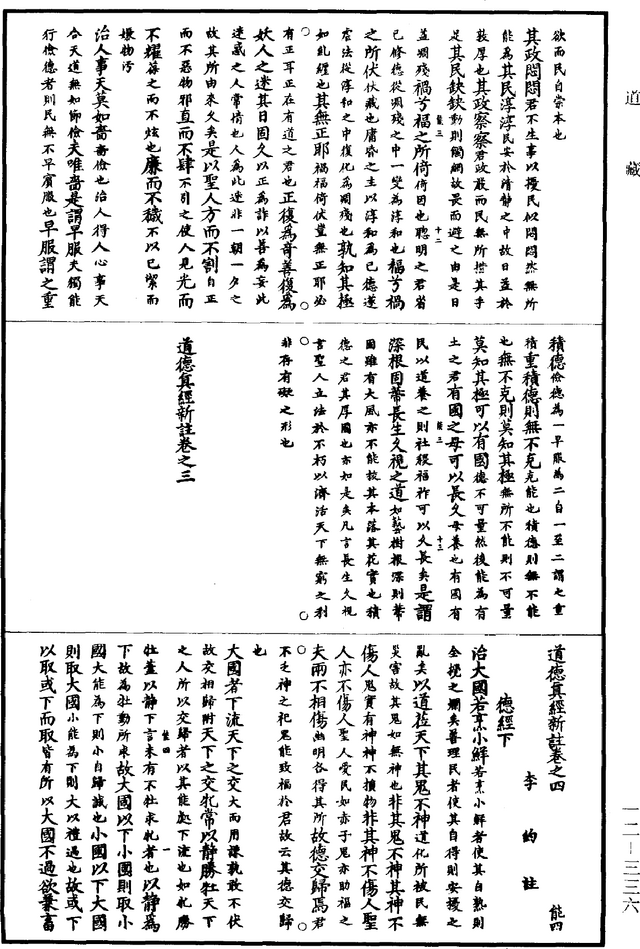 道藏
一二—三三六
欲而民自崇本也
其政悶悶君不生事以擾民似悶悶然無所
能為其民淳淳民安於清靜之中故日益於
敦厚也其政察察君政嚴而民無所措其手
足其民缺缺動則觸網故畏而避之由是日
益凋殘禍兮福之所倚倚因也聰明之君省
已修德從凋殘之中一變為淳和也福兮禍
之所伏伏藏也庸昏之主以淳和為已德遂
虐法從淳和之中復化為凋殘也孰知其極
如糺纆也其無正耶禍福倚伏豈無正耶必
有正耳正在有道之君也正復為奇善復為
妖人之迷其日固久以正為詐以善為妄此
迷惑之人常情也人為此迷非一朝一夕之
故其所由來久矣是以聖人方而不割自正
而不惡物邪直而不肆不引之使人見光而
不耀葆之而不炫也廉而不穢不以已潔而
嫌物污
治人事天莫如嗇嗇儉也治人得人心事天
合天道無如節儉夫唯嗇是謂早服夫獨能
行儉德者則民無不早賓服也早服謂之重
能三 十二
積德儉德為一早服為二自一至二謂之重
積重積德則無不克克能也積德則無不能
也無不克則莫知其極無所不能則不可量
莫知其極可以有國德不可量然後能為有
土之君有國之母可以長久母養也有國有
民以道養之則社稷福祚可以久長矣是謂
深根固蔕長生久視之道如藝樹根深則蔕
固雖有大風亦不能拔其本落其花實也積
德之君其厚國也亦如是矣凡言長生久視
言聖人立法於不朽以濟活天下無窮之利
非存有礙之形也
能三 十三
道德真經新註卷之三
道德真經新註卷之四
李約註 能四
德經下
治大國若烹小鮮若烹小鮮者使其自熟則
全撓之爛矣善理民者使其自得則安擾之
亂矣以道莅天下其鬼不神道化所被民無
災害故其鬼如無神也非其鬼不神其神不
傷人鬼實有神神不損物非其神不傷人聖
人亦不傷人聖人愛民如赤子鬼亦助福之
夫兩不相傷幽明各得其所故德交歸焉君
不乏神之祀鬼能致福於君故云其德交歸
也
大國者下流天下之交大而用謙孰敢不伏
故交相歸附天下之交牝常以靜勝牡天下
之人所以交歸者以其能處下流也如牝勝
牡蓋以靜下言未有不牡求牝者也以靜為
下故為牡動所求故大國以下小國則取小
國大能為下則小自歸誠也小國以下大國
則取大國小能為下則大以禮過也故或下
以取或下而取皆有所以大國不過欲兼畜
能四 一